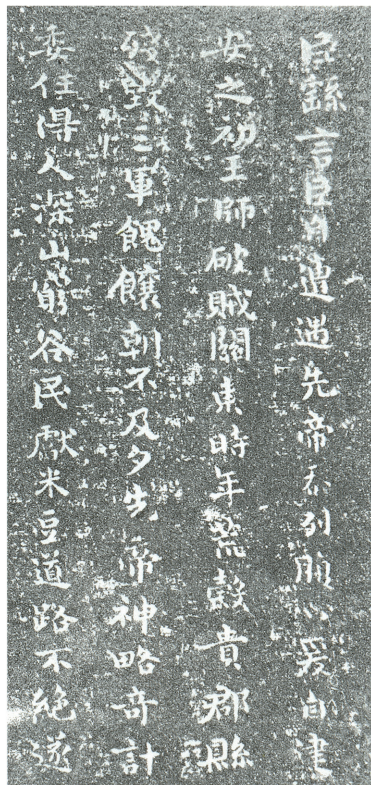 臣繇言臣自遭遇先帝忝列腹心爰自建
安之初王師破賊關東時年荒穀貴郡縣
殘毀三軍餽饟朝不及夕先帝神略奇計
委任得人深山窮谷民獻米豆道路不絕遂